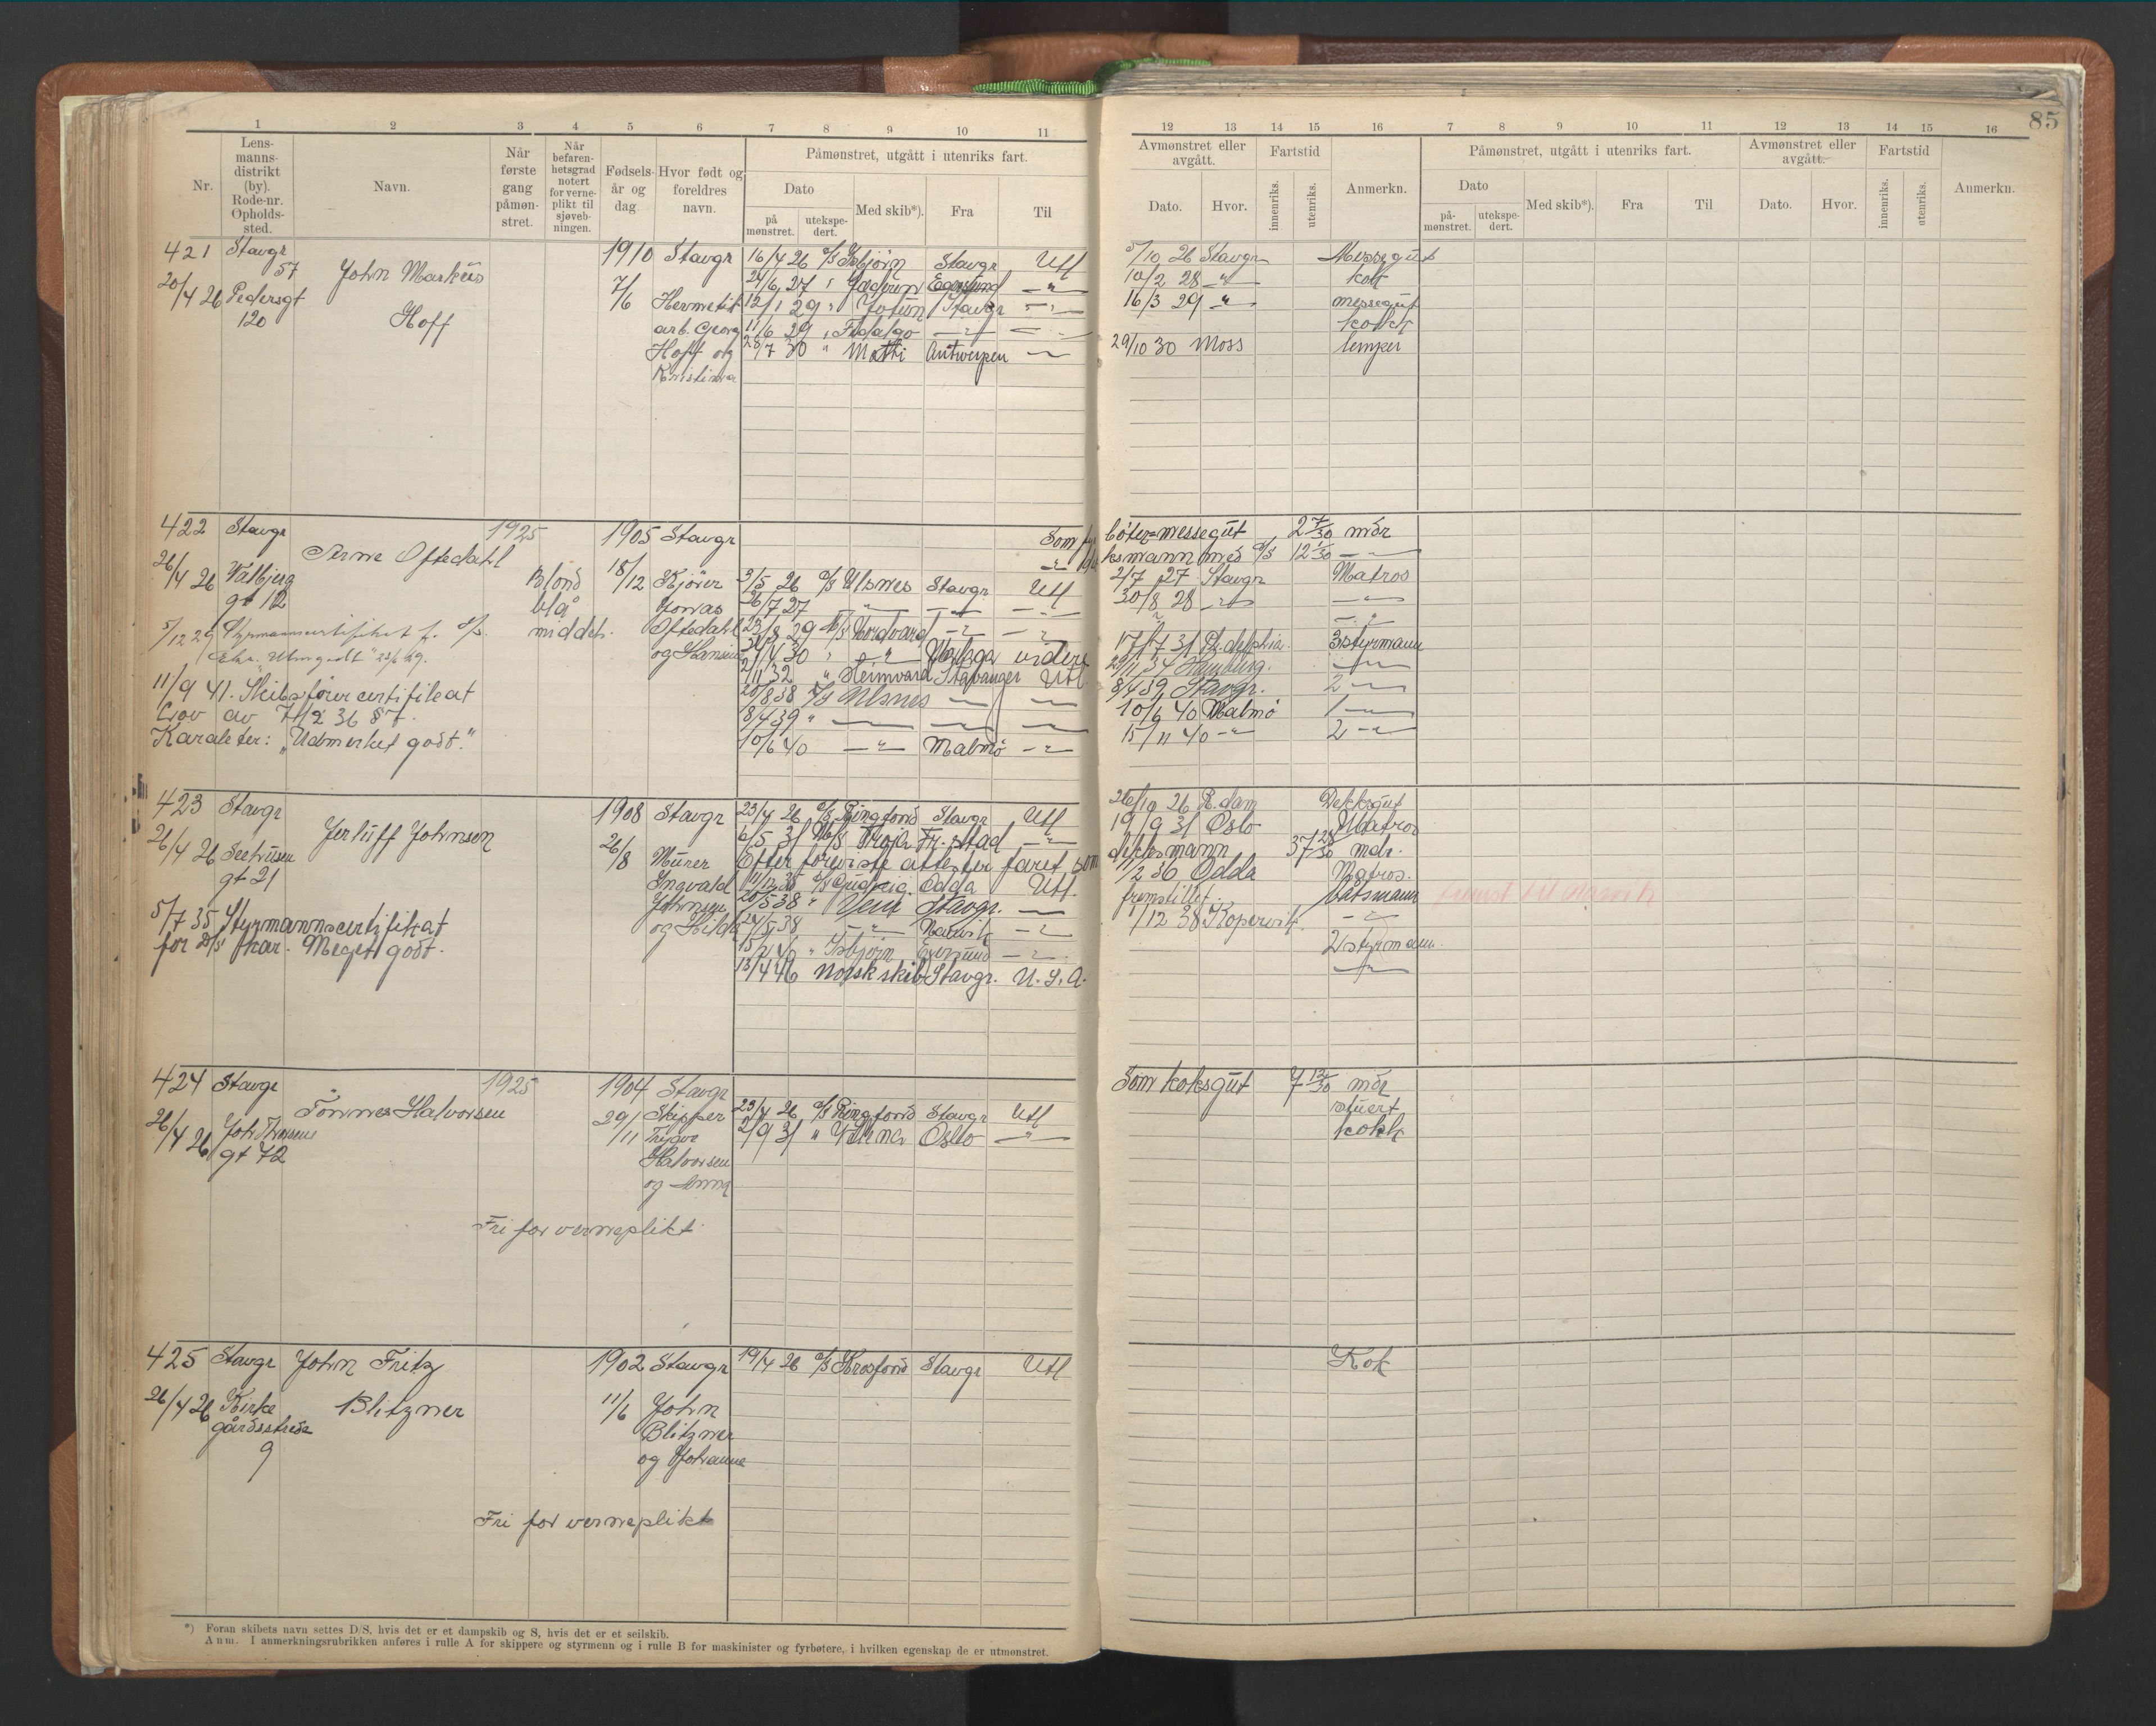 85
1 2 3 4 5 6 7 8 9 10 11 12 13 14 15 16 7 8 9 10 11 12 13 14 15 16
Nr.
Lens-
manns-
distrikt
(by).
Rode-nr.
Opholds-
sted.
Navn.
Når
første
gang
påmøn-
stret.
Når
befaren-
hetsgrad
notert
for verne-
plikt til
sjøveb-
ningen.
Fødsels-
år og
dag
Hvor født og
foreldres
navn.
Påmønstret, utgått i utenriks fart.
Dato
på
mønstret.
utekspe-
dert.
Med skib*).
Fra
Til
Avmønstret eller
avgått.
Dato.
Hvor.
Fartstid
innenriks.
utenriks.
Anmerkn.
Påmønstret, utgått i utenriks fart.
Dato
på-
mønstret.
utekspe-
dert.
Med skib*).
Fra
Til
Avmønstret eller
avgått.
Dato.
Hvor.
Fartstid
innenriks.
utenriks.
Anmerkn.
421 Stavgr 57 John Markus Hoff
20/4 26 Pedersgt 120
1910 7/6
Stavgr
Hermetik
arb. Georg
Hoff og
Kristina
16/4 26 D/S Isbjørn Stavgr Utl 5/10 26 Stavgr Messegut
24/6 27 " Jæderen Egersund -"- 10/2 28 -"- kok
12/1 29 " Jotun Stavgr -"- 16/3 29 " messegut
11/6 29 " Fidalgo -"- -"- kokk
28/7 30 " Mathi Antwerpen -"- 29/10 30 Moss lemper
422 Stavgr Arne Oftedahl 1925
26/4 26 Valbjerg
gt 12
Blond
blå
middels.
1905 18/12
Stavgr
Kjører
Jonas
Oftedahl
og Hansine
Som fyrbøter=messegut 2 7/30 mdr
dekksmann med D/S 12 1/30 -"-
3/5 26 D/S Ulsnes Stavgr Utl 2/7 27 Stavgr Matros
26/7 27 -"- -"- -"- 30/8 28 -"- -"-
23/8 29 M/S Nordvard -"- -"- -"-
24/4 30 " -"- Malaga videre 17/7 31 Ph.delphia. 3styrmann
2/11 32 " Heimvard Stavanger Utl. 29/11 34 Hamburg. -"-
20/8 38 D/S Ulsnes -"- -"- 8/4 39 Stavgr. 2 -"-
8/4 39 " -"- -"- -"- 10/6 40 Malmö 1 -"-
10/6 40 -"- Malmö -"- 15/11 40 -"- 2 -"-
5/12 29 Styrmannscertifikat f. D/S.
11/9 41. Skibsførercertifikat
Lov av 7/12 36 § 7.
Karakter: "Udmerket godt."
423 Stavgr Jertuff Johnsen
26/4 26 Seehusen
gt 21
1908 26/8
Stavgr
Murer
Ingvald
Johnsen
og Hilda
23/4 26 D/S Ringfond Stavgr Utl 26/10 26 R.dam Dekksgut
6/5 31 M/S Troja Fr.stad -"- 19/9 31 Oslo Matros
Efter foreviste attester faret som dekksmann 37 28/30 mdr.
11/12 35 D/S Gudveig Odda Utl. 11/2 36 Odda Matros.
20/5 38 " Veni Stavgr. -"- fremstillet. båtsmann
24/5 38 -"- Narvik -"- 1/12 38 Kopervik. -"-
15/2 40 " Isbjørn Egersund -"- 2styrmann.
13/4 46 Norsk skib Stavgr. U.S.A. -"-
5/7 35 Styrmannscertifikat
for D/S fkar. Meget godt.
424 Stavgr Tønnes Halvorsen 1925
26/4 26 Joh Thorsens
gt 72
1904 29/11
Stavgr
Skipper
Trygve
Halvorsen
og Anna
Som koksgut 7 12/30 mdr
23/4 26 D/S Ringfond Stavgr Utl stuert
2/9 31 " Velma Oslo -"- kokk
Fri for verneplikt.
425 Stavgr John Fritz Blitzner
26/4 26 Kirke
gårdsstrede
9
1902 11/6
Stavgr
John
Blitzner
og Johanne
19/4 26 D/S Krosfond Stavgr Utl Kok
Fri for verneplikt
*) Foran skibets navn settes D/S, hvis det er et dampskib og S, hvis det er et seilskib.
Anm. I anmerkningsrubrikken anføres i rulle A for skippere og styrmenn og i rulle B for maskinister og fyrbøtere, i hvilken egenskap de er utmønstret.